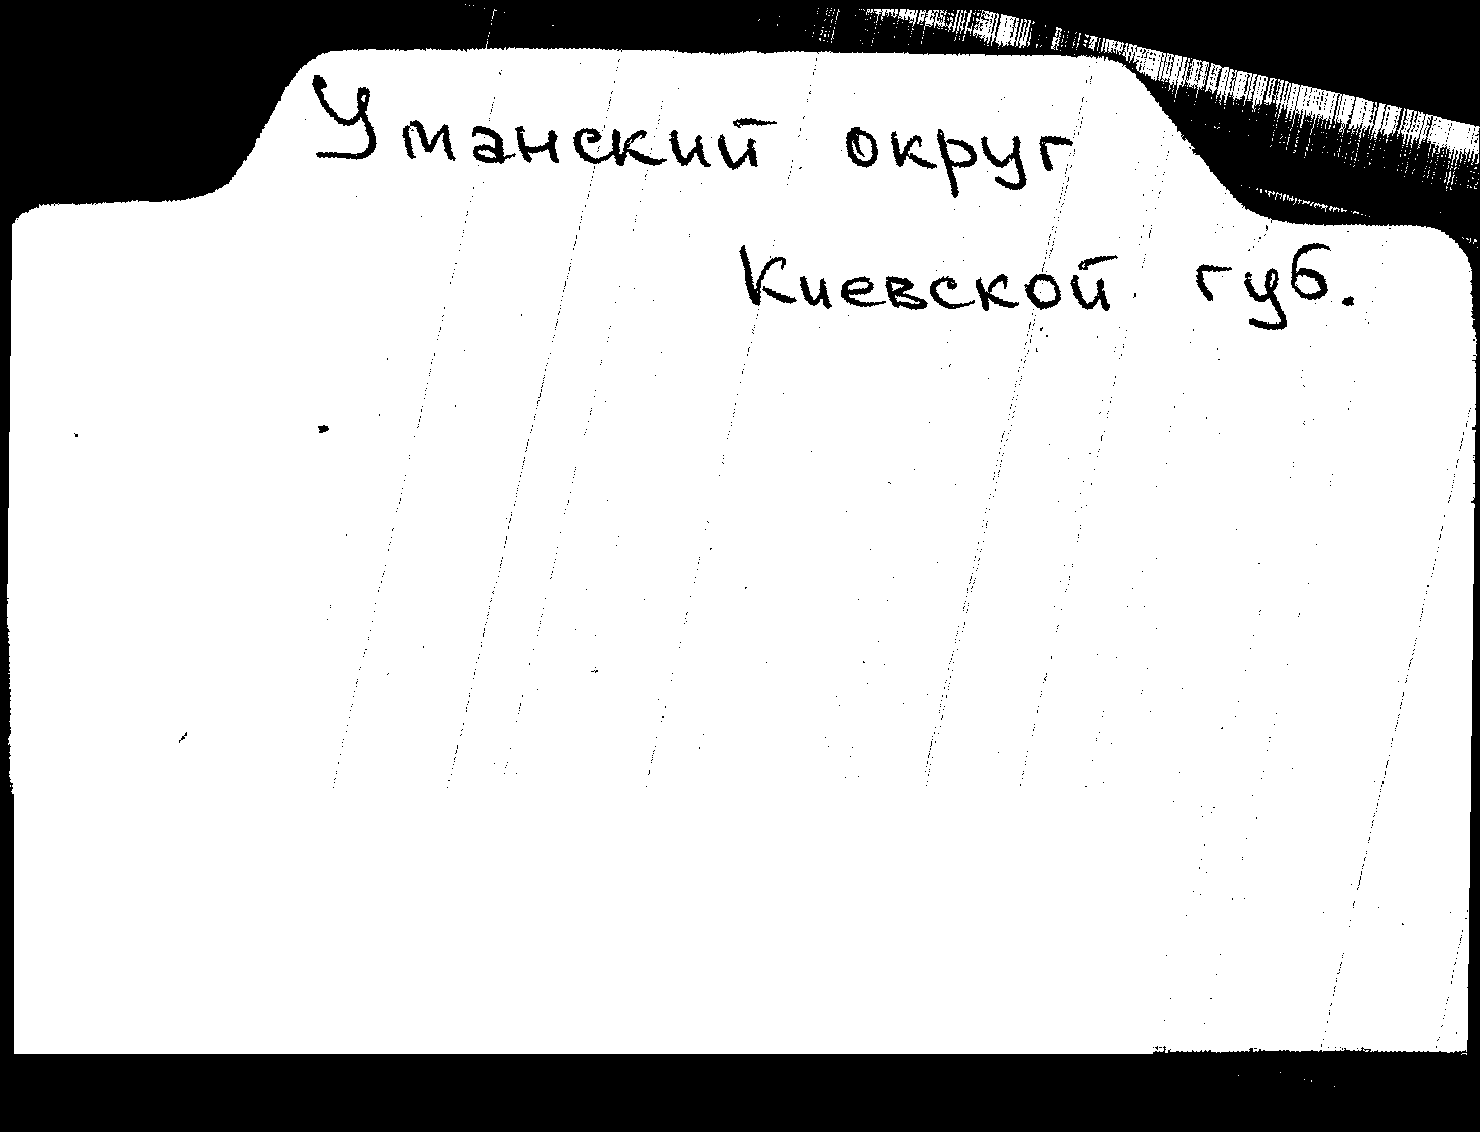 Уманский округ
Киевской губ.